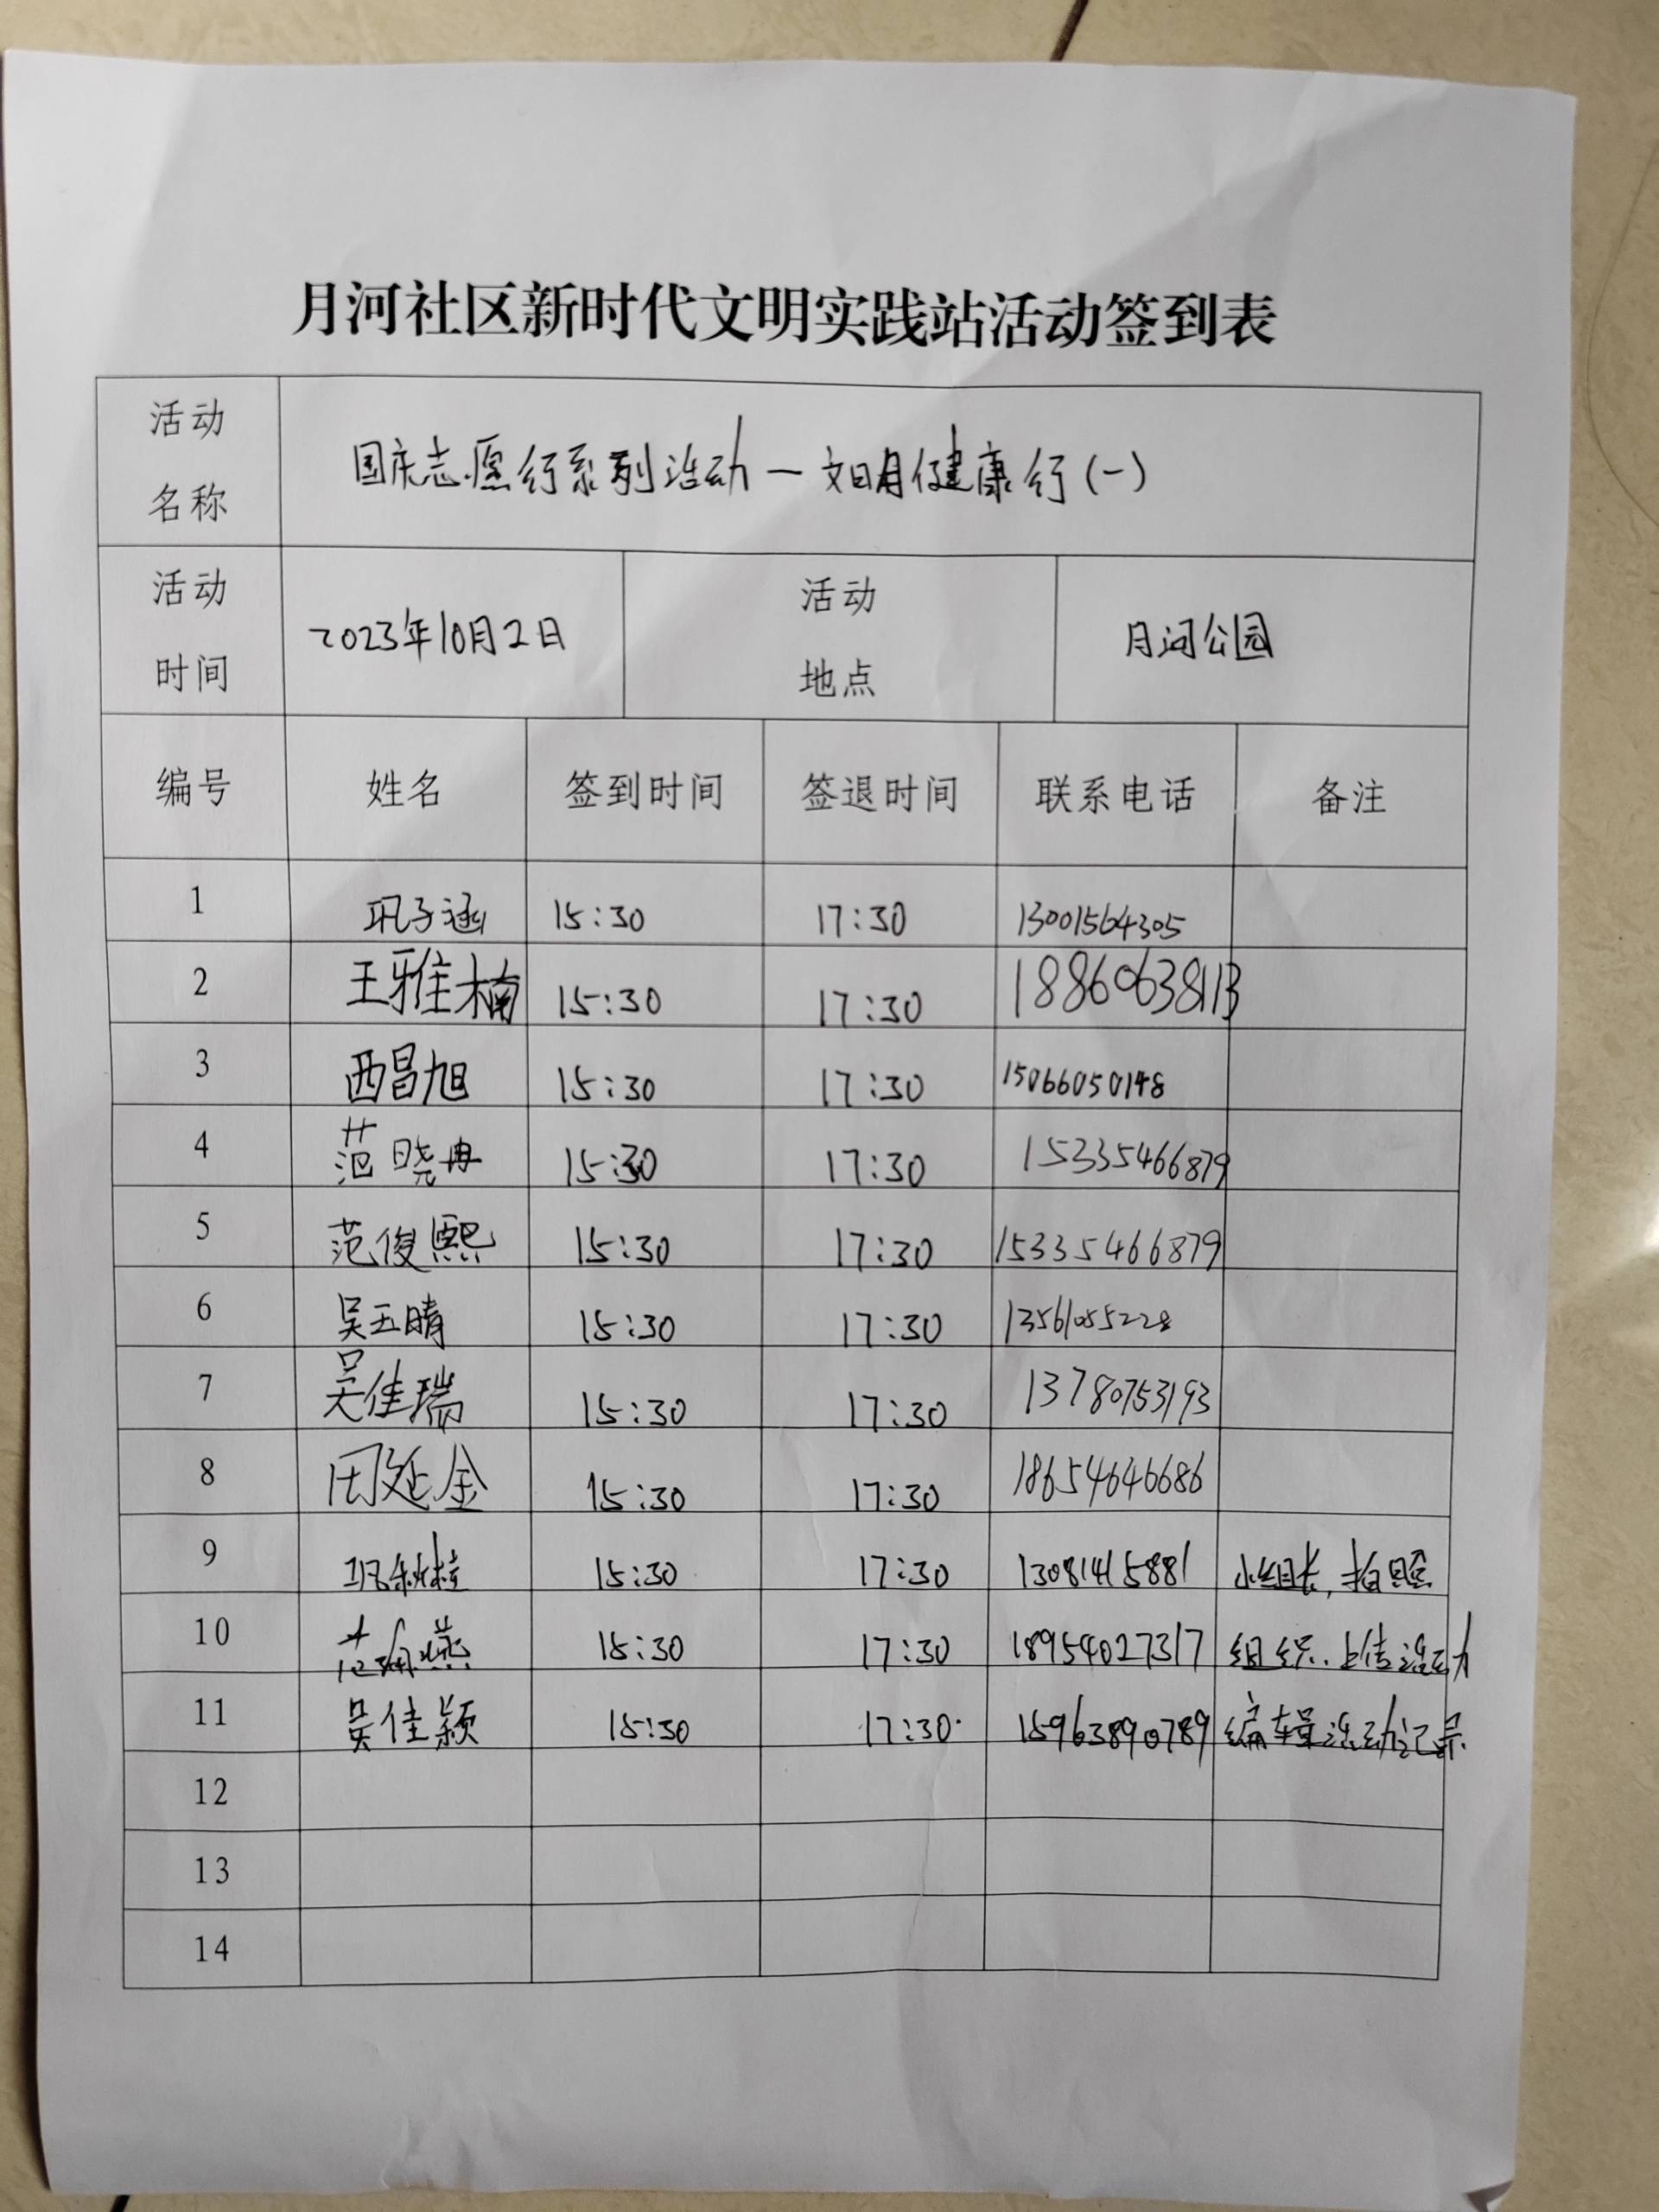 月河社区新时代文明实践站活动签到表
活动名称 国庆志愿行系列活动—文明健康行(一)
活动时间 2023年10月2日 活动地点 月河公园
编号 姓名 签到时间 签退时间 联系电话 备注
1 巩子涵 15:30 17:30 13001564305
2 王雅楠 15:30 17:30 18860638113
3 西昌旭 15:30 17:30 15066050148
4 范晓冉 15:30 17:30 15335466879
5 范俊熙 15:30 17:30 15335466879
6 吴玉晴 15:30 17:30 13561055228
7 吴佳瑞 15:30 17:30 13780753193
8 田延金 15:30 17:30 18654646686
9 15:30 17:30 13081415881 小组长,拍照
10 15:30 17:30 18954027317 组织.上传活动
11 吴佳颖 15:30 17:30. 15963890789 编辑活动记录.
12
13
14